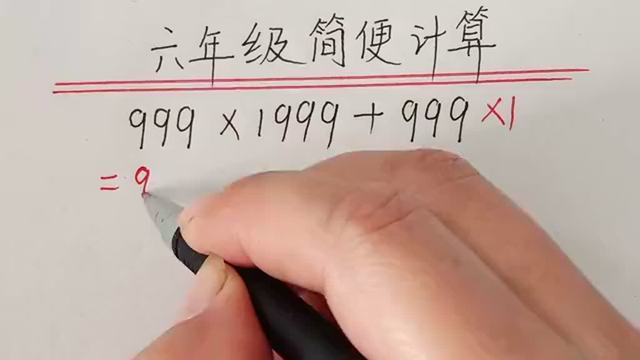 六年级简便计算
999×1999+999×1
=9